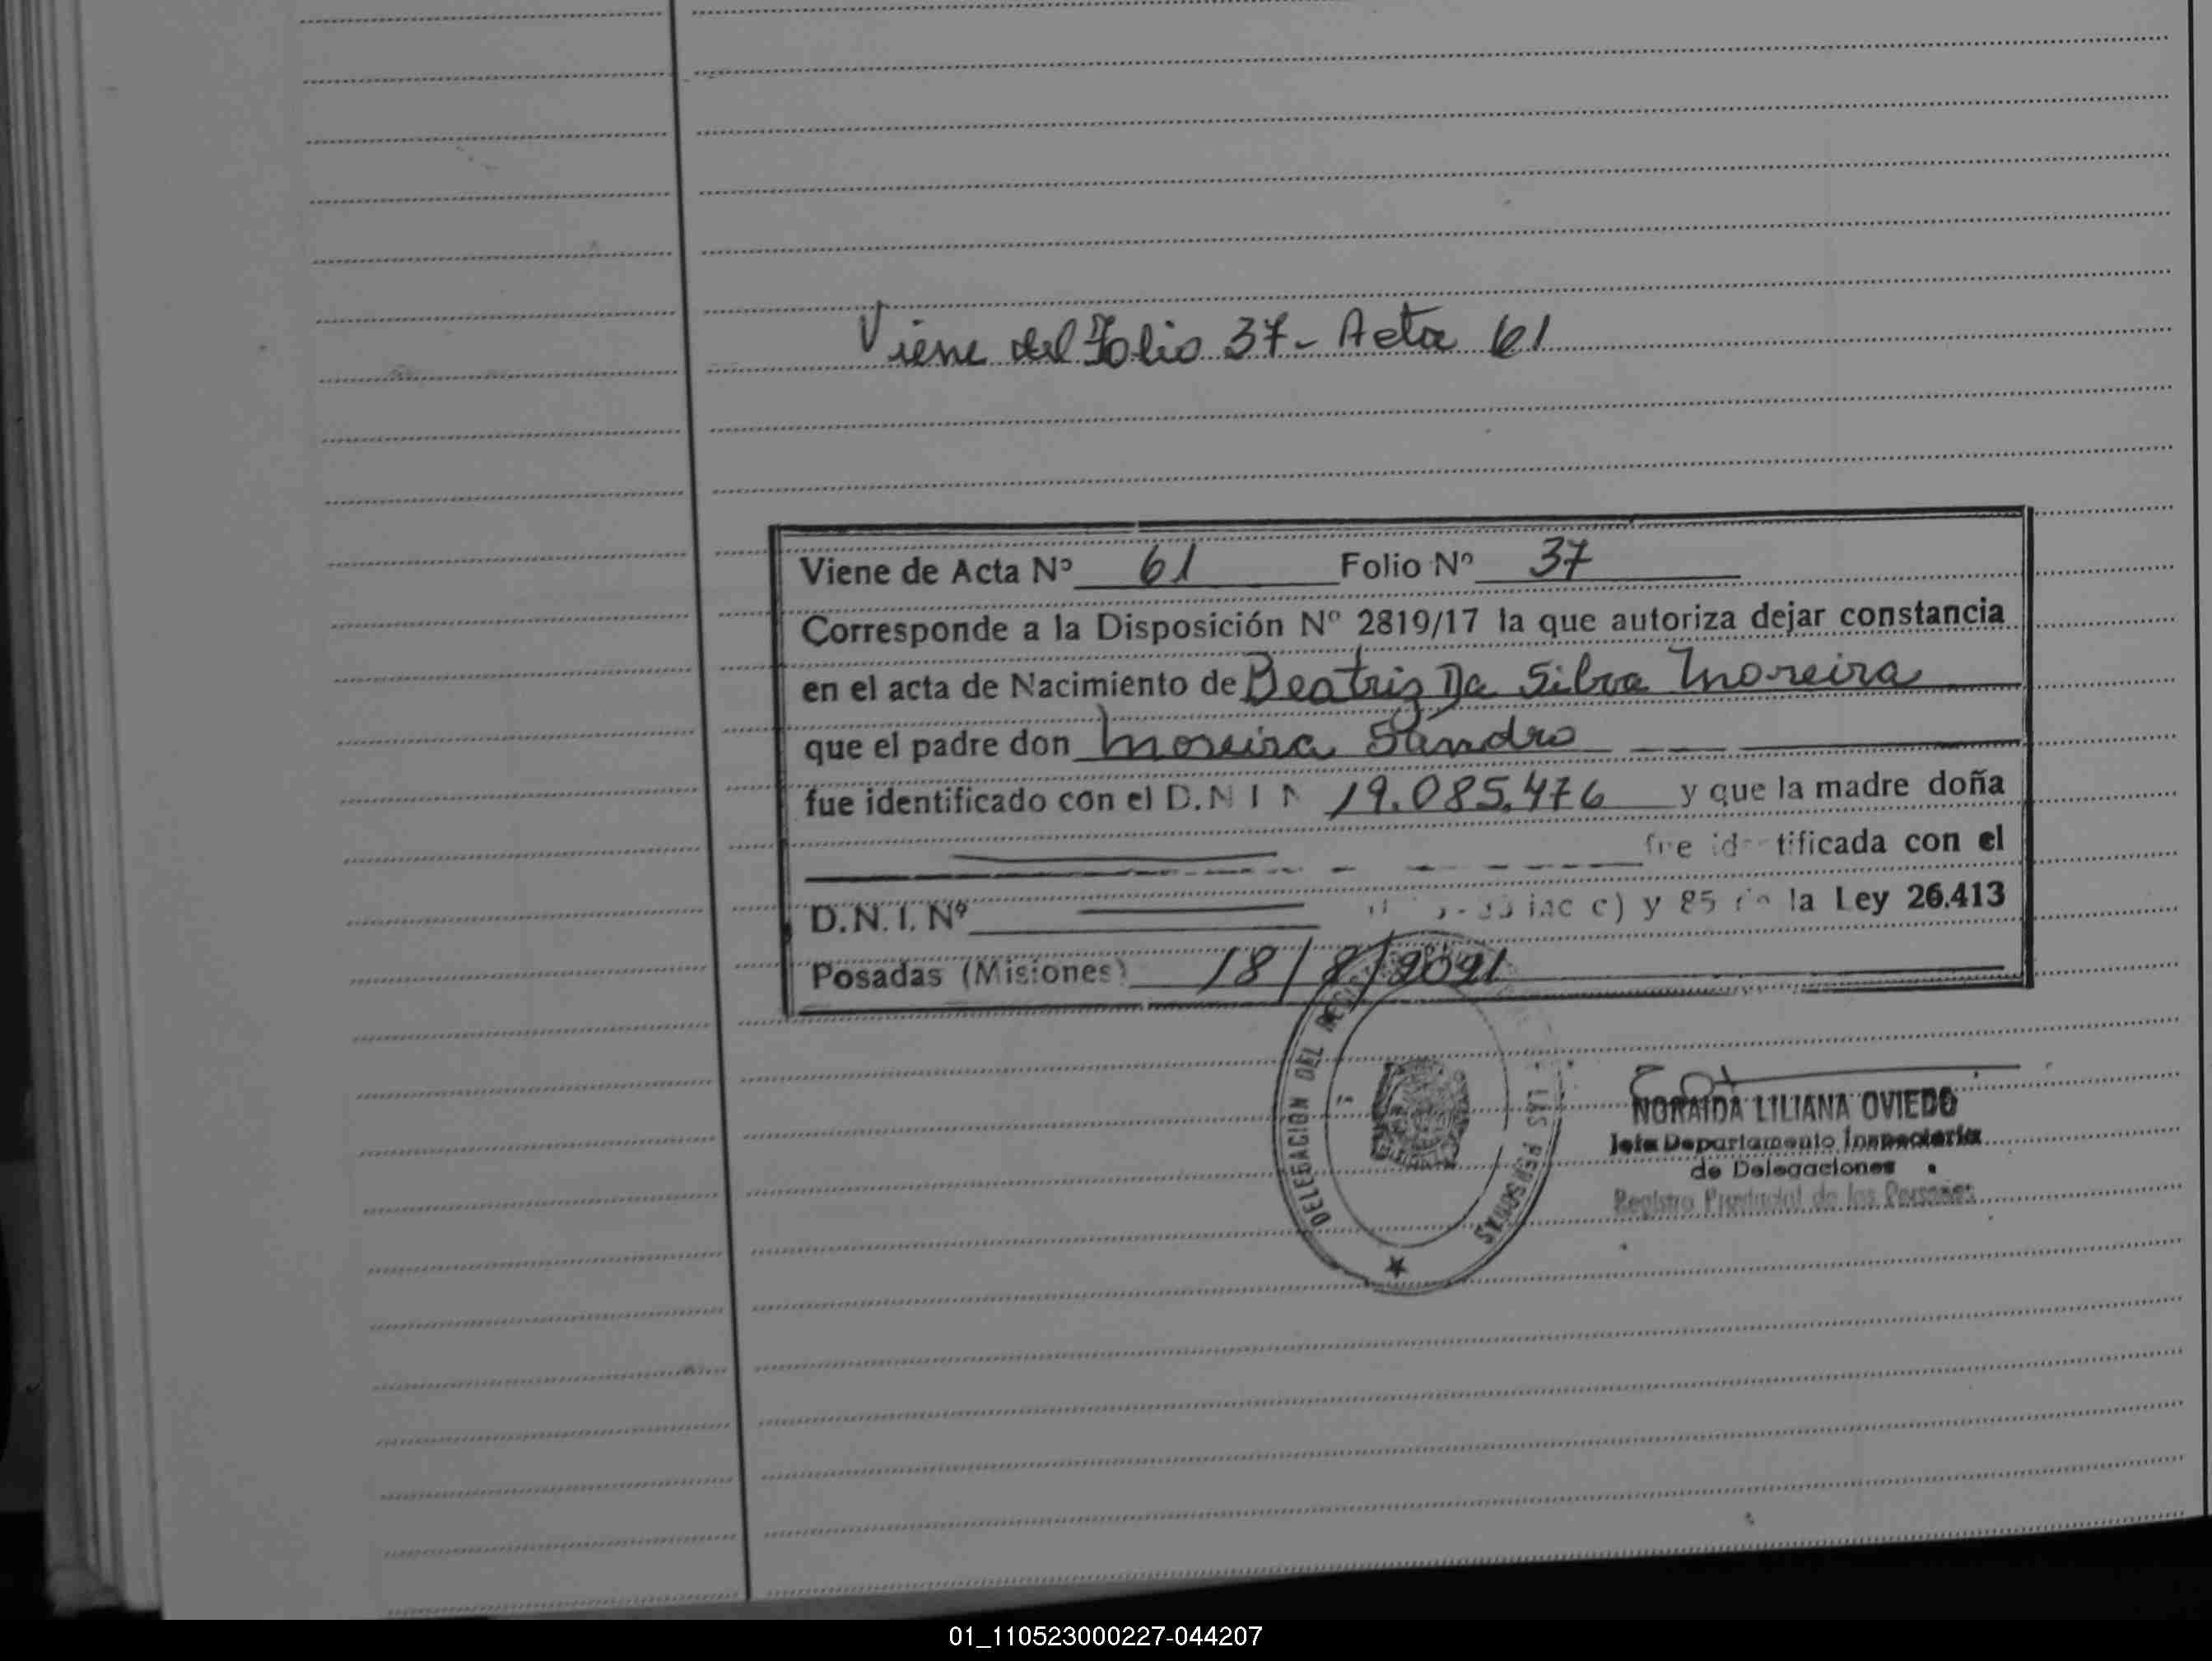 Viene del Folio 37 - Acta 61
Viene de Acta Nº 61 Folio Nº 37
Corresponde a la Disposición Nº 2819/17 la que autoriza dejar constancia
en el acta de Nacimiento de Beatriz Da Silva Moreira
que el padre don Moreira Sandro
fue identificado con el D.N.I N 19.085.476 y que la madre doña
fue identificada con el
D.N.I. Nº inc c) y 85 de la Ley 26.413
Posadas (Misiones) 18/8/2021
DELEGACION DEL REGIS LAS PERSONAS
NORAIDA LILIANA OVIEDO
Jefa Departamento Inspectoria
de Delegaciones
Registro Provincial de las Personas
01_110523000227-044207